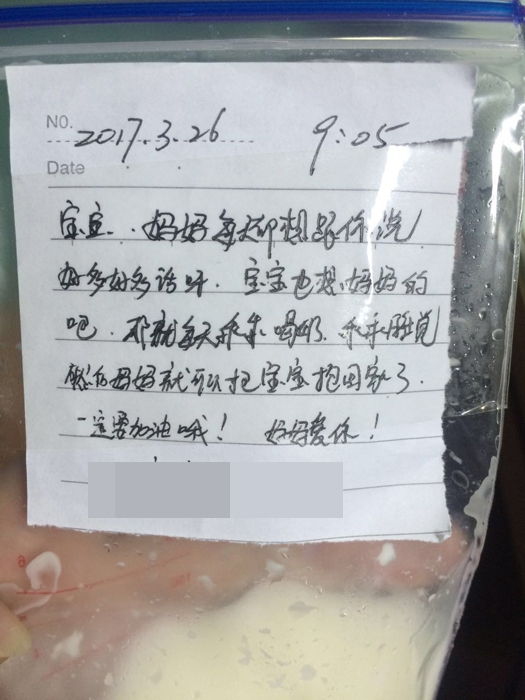 No. 2017.3.26 9:05
Date
宝宝、妈妈每天都想跟你说
好多好多话呀. 宝宝也想妈妈的
吧. 那就每天乖乖喝奶. 乖乖睡觉
然后妈妈就可以把宝宝抱回家了.
一定要加油哦! 妈妈爱你!